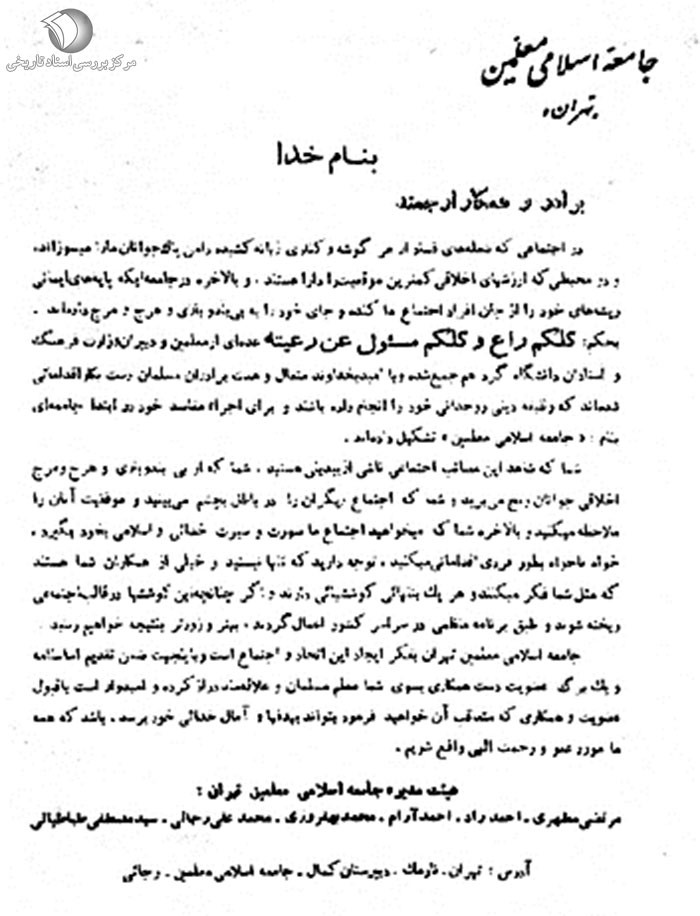 مرکز بررسی اسناد تاریخی
جامعة اسلامی معلمین
تهران
بنام خدا
برادر و همکار ارجمند
در اجتماعی که شعله‌های فساد از هر گوشه و کناری زبانه کشیده دامن پاک جوانان ما را میسوزاند،
و در محیطی که ارزشهای اخلاقی کمترین موقعیت را دارا هستند ، و بالاخره در جامعه‌ایکه پایه‌های ایمانی
ریشه‌های خود را از جان افراد اجتماع ما کنده و جای خود را به بی‌بندوباری و هرج و مرج داده‌اند .
بحکم: کلکم راع و کلکم مسئول عن رعیته عده‌ای از معلمین و دبیران وزارت فرهنگ
و استادان دانشگاه گرد هم جمع شده و با امید بخداوند متعال و همت برادران مسلمان دست بکار اقداماتی
شده‌اند که وظیفه دینی و وجدانی خود را انجام داده باشند و برای اجراء مقاصد خود در ابتدا جامعه‌ای
بنام : « جامعه اسلامی معلمین » تشکیل داده‌اند .
شما که شاهد این مصائب اجتماعی ناشی از بیدینی هستید . شما که از بی بندوباری و هرج و مرج
اخلاقی جوانان رنج می‌برید و شما که اجتماع دیگران را در باطل بچشم می‌بینید و موفقیت آنان را
ملاحظه میکنید و بالاخره شما که میخواهید اجتماع ما صورت و سیرت خدائی و اسلامی بخود بگیرد .
خواه ناخواه بطور فردی اقداماتی میکنید . توجه دارید که تنها نیستید و خیلی از همکاران شما هستند
که مثل شما فکر میکنند و هر یک بتنهائی کوششهائی دارند و اگر چنانچه این کوششها در قالب اجتماعی
ریخته شوند و طبق برنامه منظمی در سراسر کشور اعمال گردند ، بهتر و زودتر بنتیجه خواهیم رسید .
جامعه اسلامی معلمین تهران بفکر ایجاد این اتحاد و اجتماع است و باینجهت ضمن تقدیم اساسنامه
و یک برگ عضویت دست همکاری بسوی شما معلم مسلمان و علاقمند دراز کرده و امیدوار است با قبول
عضویت و همکاری که متعاقب آن خواهید فرمود بتواند بهدفها و آمال خدائی خود برسد . باشد که همه
ما مورد عفو و رحمت الهی واقع شویم .
هیئت مدیره جامعه اسلامی معلمین تهران :
مرتضی مطهری . احمد راد . احمد آرام . محمد بهفروزی . محمد علی رجائی . سید مصطفی طباطبائی
آدرس : تهران . نارمک . دبیرستان کمال . جامعه اسلامی معلمین . رجائی